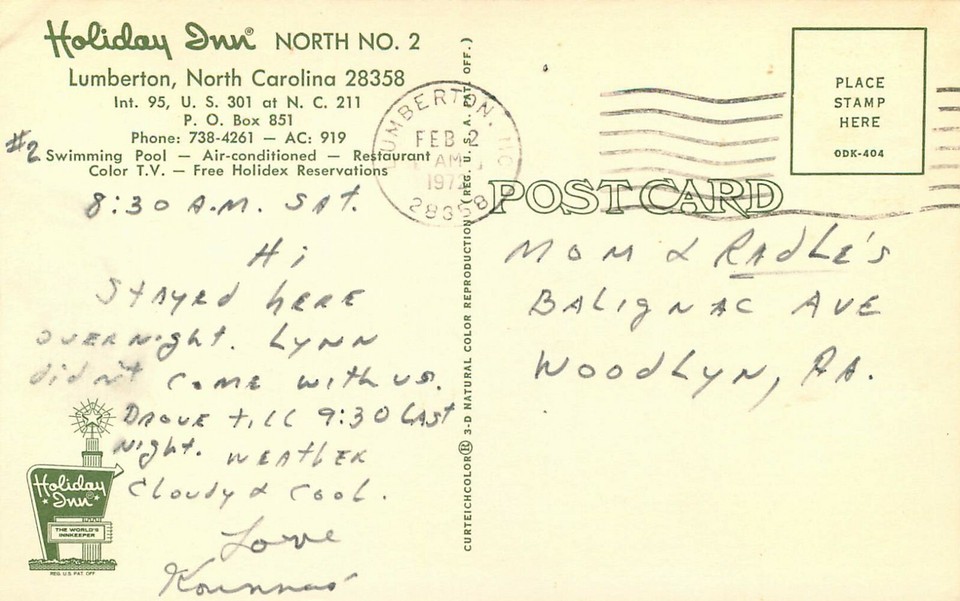 Holiday Inn® NORTH NO. 2
Lumberton, North Carolina 28358
Int. 95, U. S. 301 at N. C. 211
P. O. Box 851
Phone: 738-4261 — AC: 919
#2
Swimming Pool — Air-conditioned — Restaurant
Color T.V. — Free Holidex Reservations
8:30 A.M. SAT.
Hi
STAYED here
overnight. LYNN
didn't come with us.
Drove till 9:30 Last
night. weather
Cloudy & cool.
Love
CURTEICHCOLOR® 3-D NATURAL COLOR REPRODUCTION (REG. U.S.A. PAT. OFF.)
LUMBERTON, NC
FEB 2
AM
1972
28358
PLACE
STAMP
HERE
ODK-404
POST CARD
MOM & RADLE'S
BALIGNAC AVE
WOODLYN, PA.
Holiday
Inn®
THE WORLD'S
INNKEEPER
REG. U.S. PAT. OFF